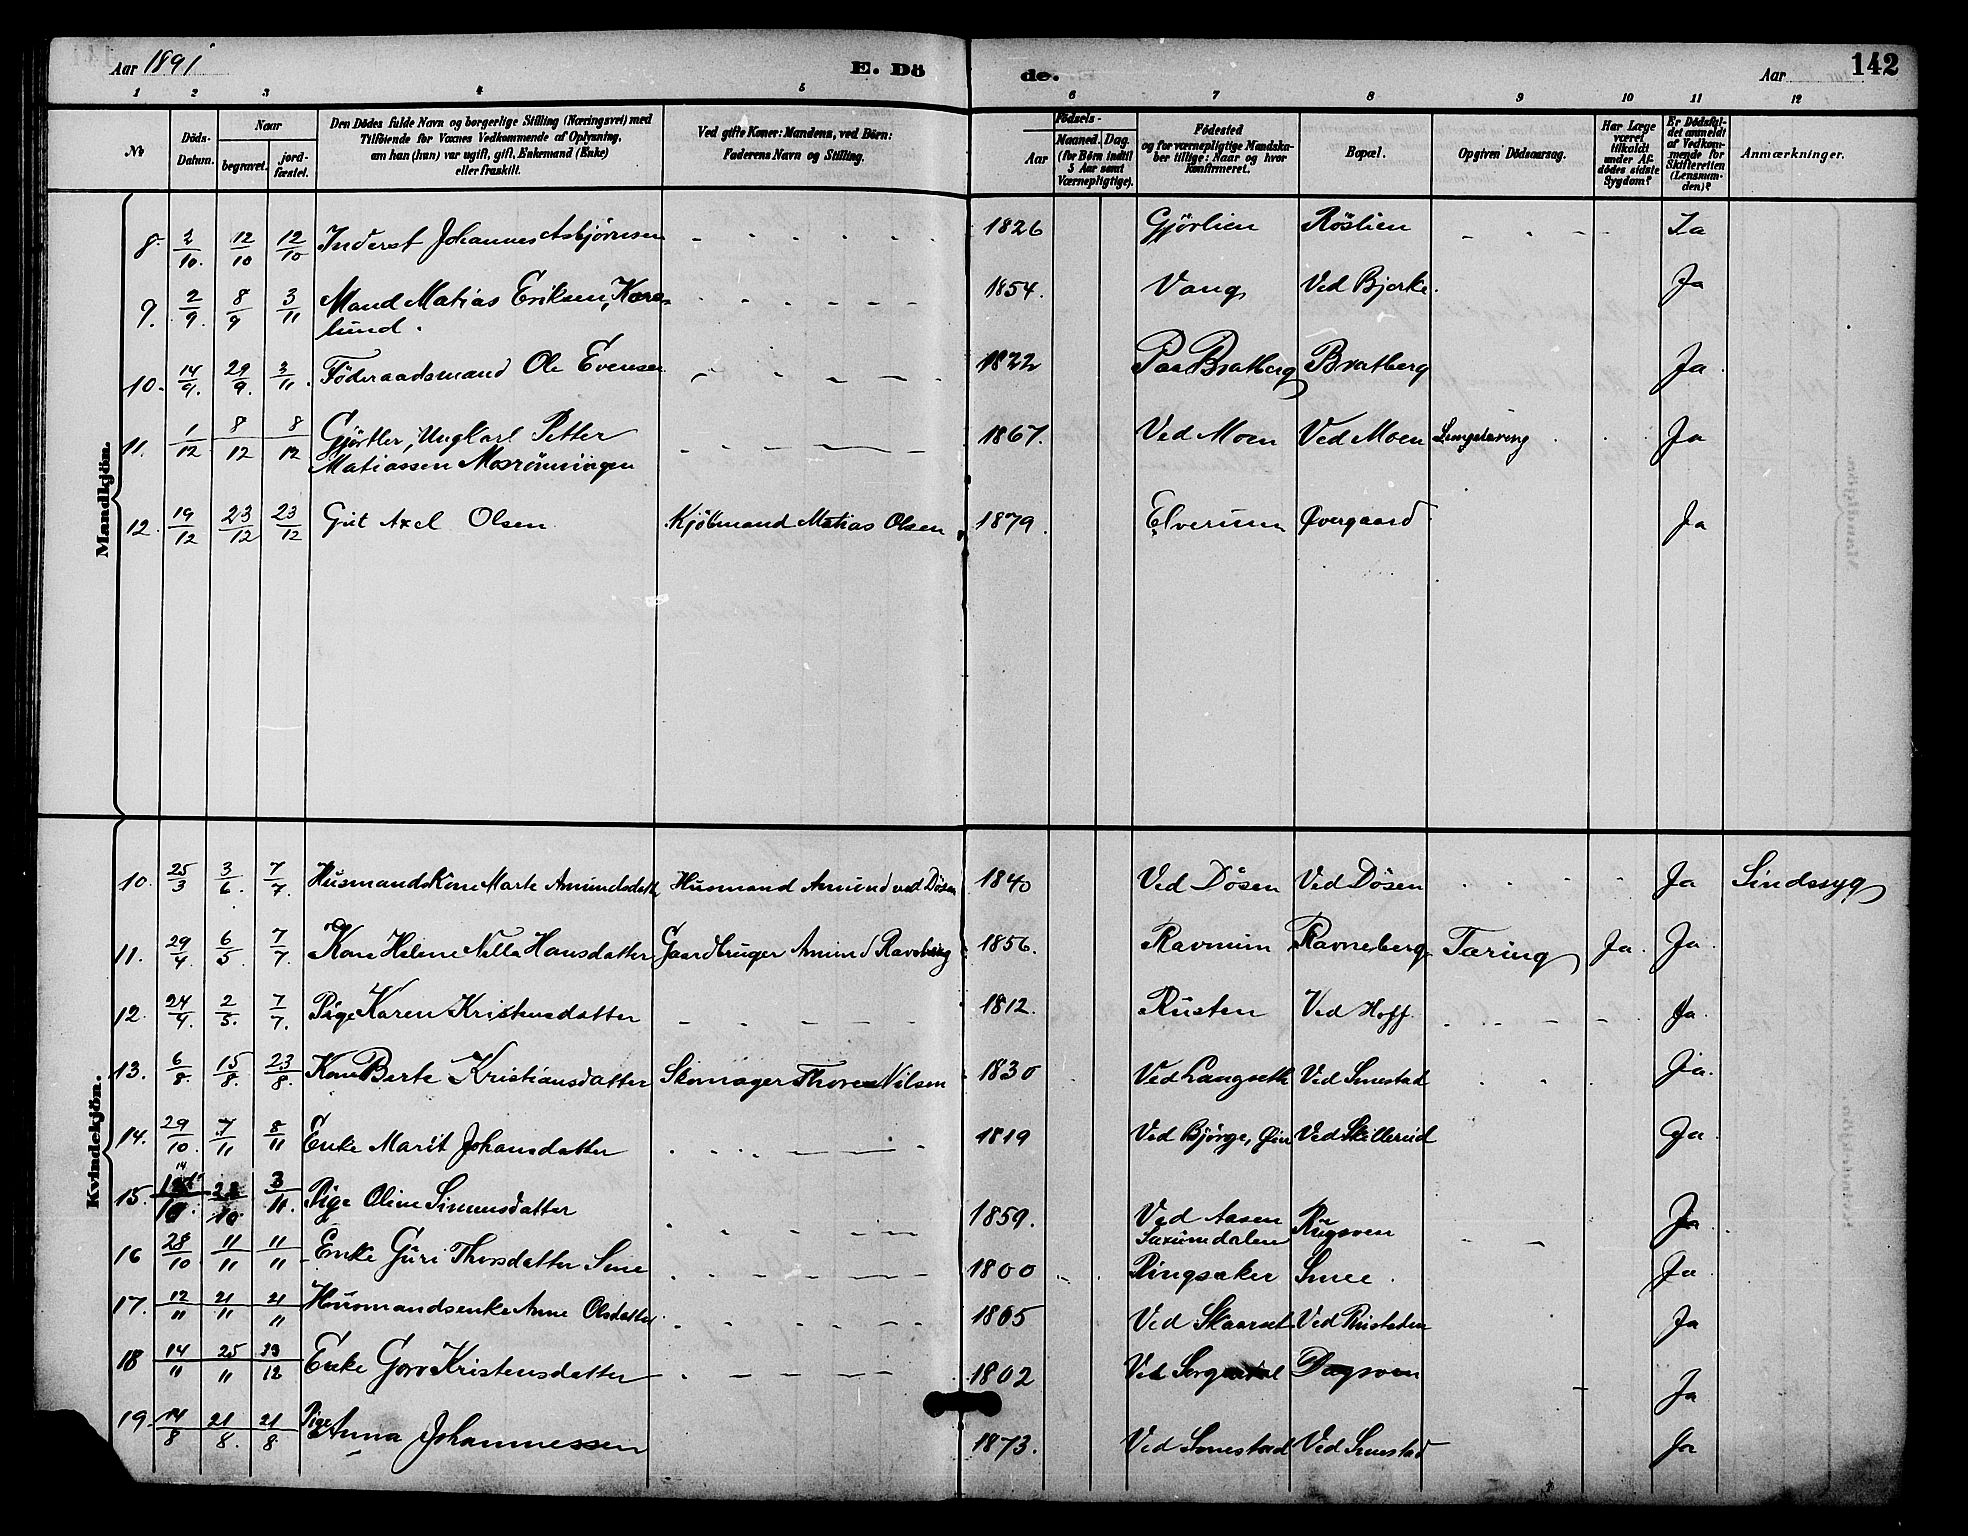 Aar 1891
E. Dö
de.
Aar
142
1 2 3 4 5 6 7 8 9 10 11 12
No
Döds-
Datum.
Naar
begravet.
jord-
fæstet.
Den Dödes fulde Navn og borgerlige Stilling (Næringsvei) med
Tilföiende for Voxnes Vedkommende af Oplysning,
om han (hun) var ugift, gift, Enkemand (Enke)
eller fraskilt.
Ved gifte Koner: Mandens, ved Börn:
Faderens Navn og Stilling.
Födsels-
Aar
Maaned. Dag.
(for Börn indtil
5 Aar samt
Værnepligtige).
Födested
og for værnepligtige Mandska-
ber tillige: Naar og hvor
konfirmeret.
Bopæl.
Opgiven Dödsaarsag.
Har Læge
været
tilkaldt
under Af-
dödes sidste
Sygdom?
Er Dödsfal-
det anmeldt
af Vedkom-
mende for
Skifteretten
(Lensman-
den)?
Anmærkninger.
Mandkjön.
8. 2/10. 12/10 12/10 Inderst Johannes Asbjørnsen 1826 Gjörlien Röslien Ja
9. 2/9. 8/9 3/11 Mand Matias Eriksen, Kore-
lund. 1854. Vang Ved Bjerke. Ja
10. 14/9. 29/9. 3/11. Föderaadsmand Ole Evensen 1822 Paa Bratberg Bratberg Ja
11. 1/12 8/12 8/12 Gjörtler, Ungkarl Petter
Matiassen Mosrönningen 1867. Ved Moen Ved Moen Ja
12. 19/12 23/12 23/12 Gut Axel Olsen Kjöbmand Matias Olsen 1879. Elverum Övergaard Ja
Kvindekjön.
10. 25/3 3/6. 7/7. Husmands Kone Marte Amundsdatt Husmand Amund ved Dösen 1840 Ved Dösen Ved Dösen Ja Sindssyg
11. 29/4. 6/5. 7/7. Kone Helene Nilla Hansdatter Gaardbruger Amund Ravneberg 1856. Ravnum Ravneberg Tæring Ja. Ja.
12. 24/4. 2/5. 7/7. Pige Karen Kristensdatter 1812. Rusten Ved Hoff. Ja.
13. 6/8. 15/8. 23/8. Kone Berte Kristiansdatter Skomager Thore Nilsen 1830 Ved Langseth Ved Smestad Ja.
14. 29/10. 7/11 8/11 Enke Marit Johansdatter 1819 Ved Björge, Öier Ved Skillerud Ja.
15. 14 10. 3/11. Pige Oline Simensdatter 1859. Ved Aasen
Saxumdalen Rugsveen Ja.
16 28/10. 11/11 11/11 Enke Guri Thorsdatter Smee 1800 Ringsaker Smee. Ja.
17. 12/11 21/11 21/11 Husmandsenke Anne Olsdatter 1805 Ved Skaarset Ved Rustaden Ja
18 14/11 25/11 13/12 Enke Goro Kristensdatter 1802 Ved Dagsveen Ja
19. 14/8 21/8. 21/8 Pige Anna Johannessen 1873. Ved Smestad Ved Smestad Ja